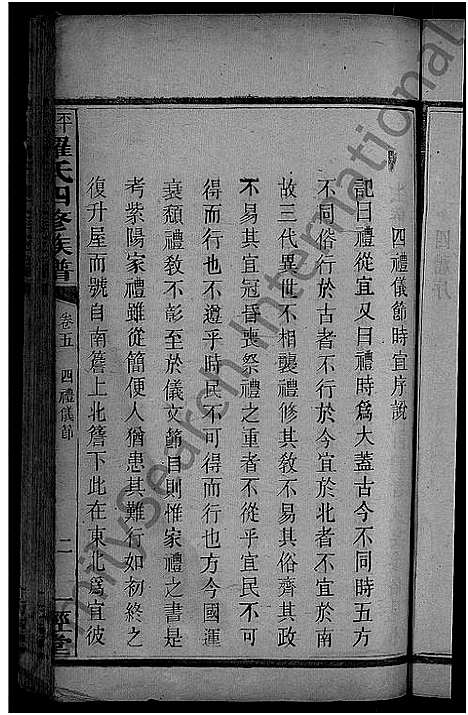 四禮儀節時宜序說
記曰禮從宜又曰禮時爲大蓋古今不同時五方
不同俗行於古者不行於今宜於北者不宜於南
故三代異世不相襲禮修其敎不易其俗齊其政
不易其宜冠昏喪祭禮之重者不從乎宜民不可
得而行也不遵乎時民不可得而行也方今國運
衰頽禮敎不彰至於儀文節目則惟家禮之書是
考紫陽家禮雖從簡便人猶患其難行如初終之
復升屋而號自南簷上北簷下此在東北爲宜彼
羅氏四修族譜
卷五 四禮儀節
二
FamilySearch International